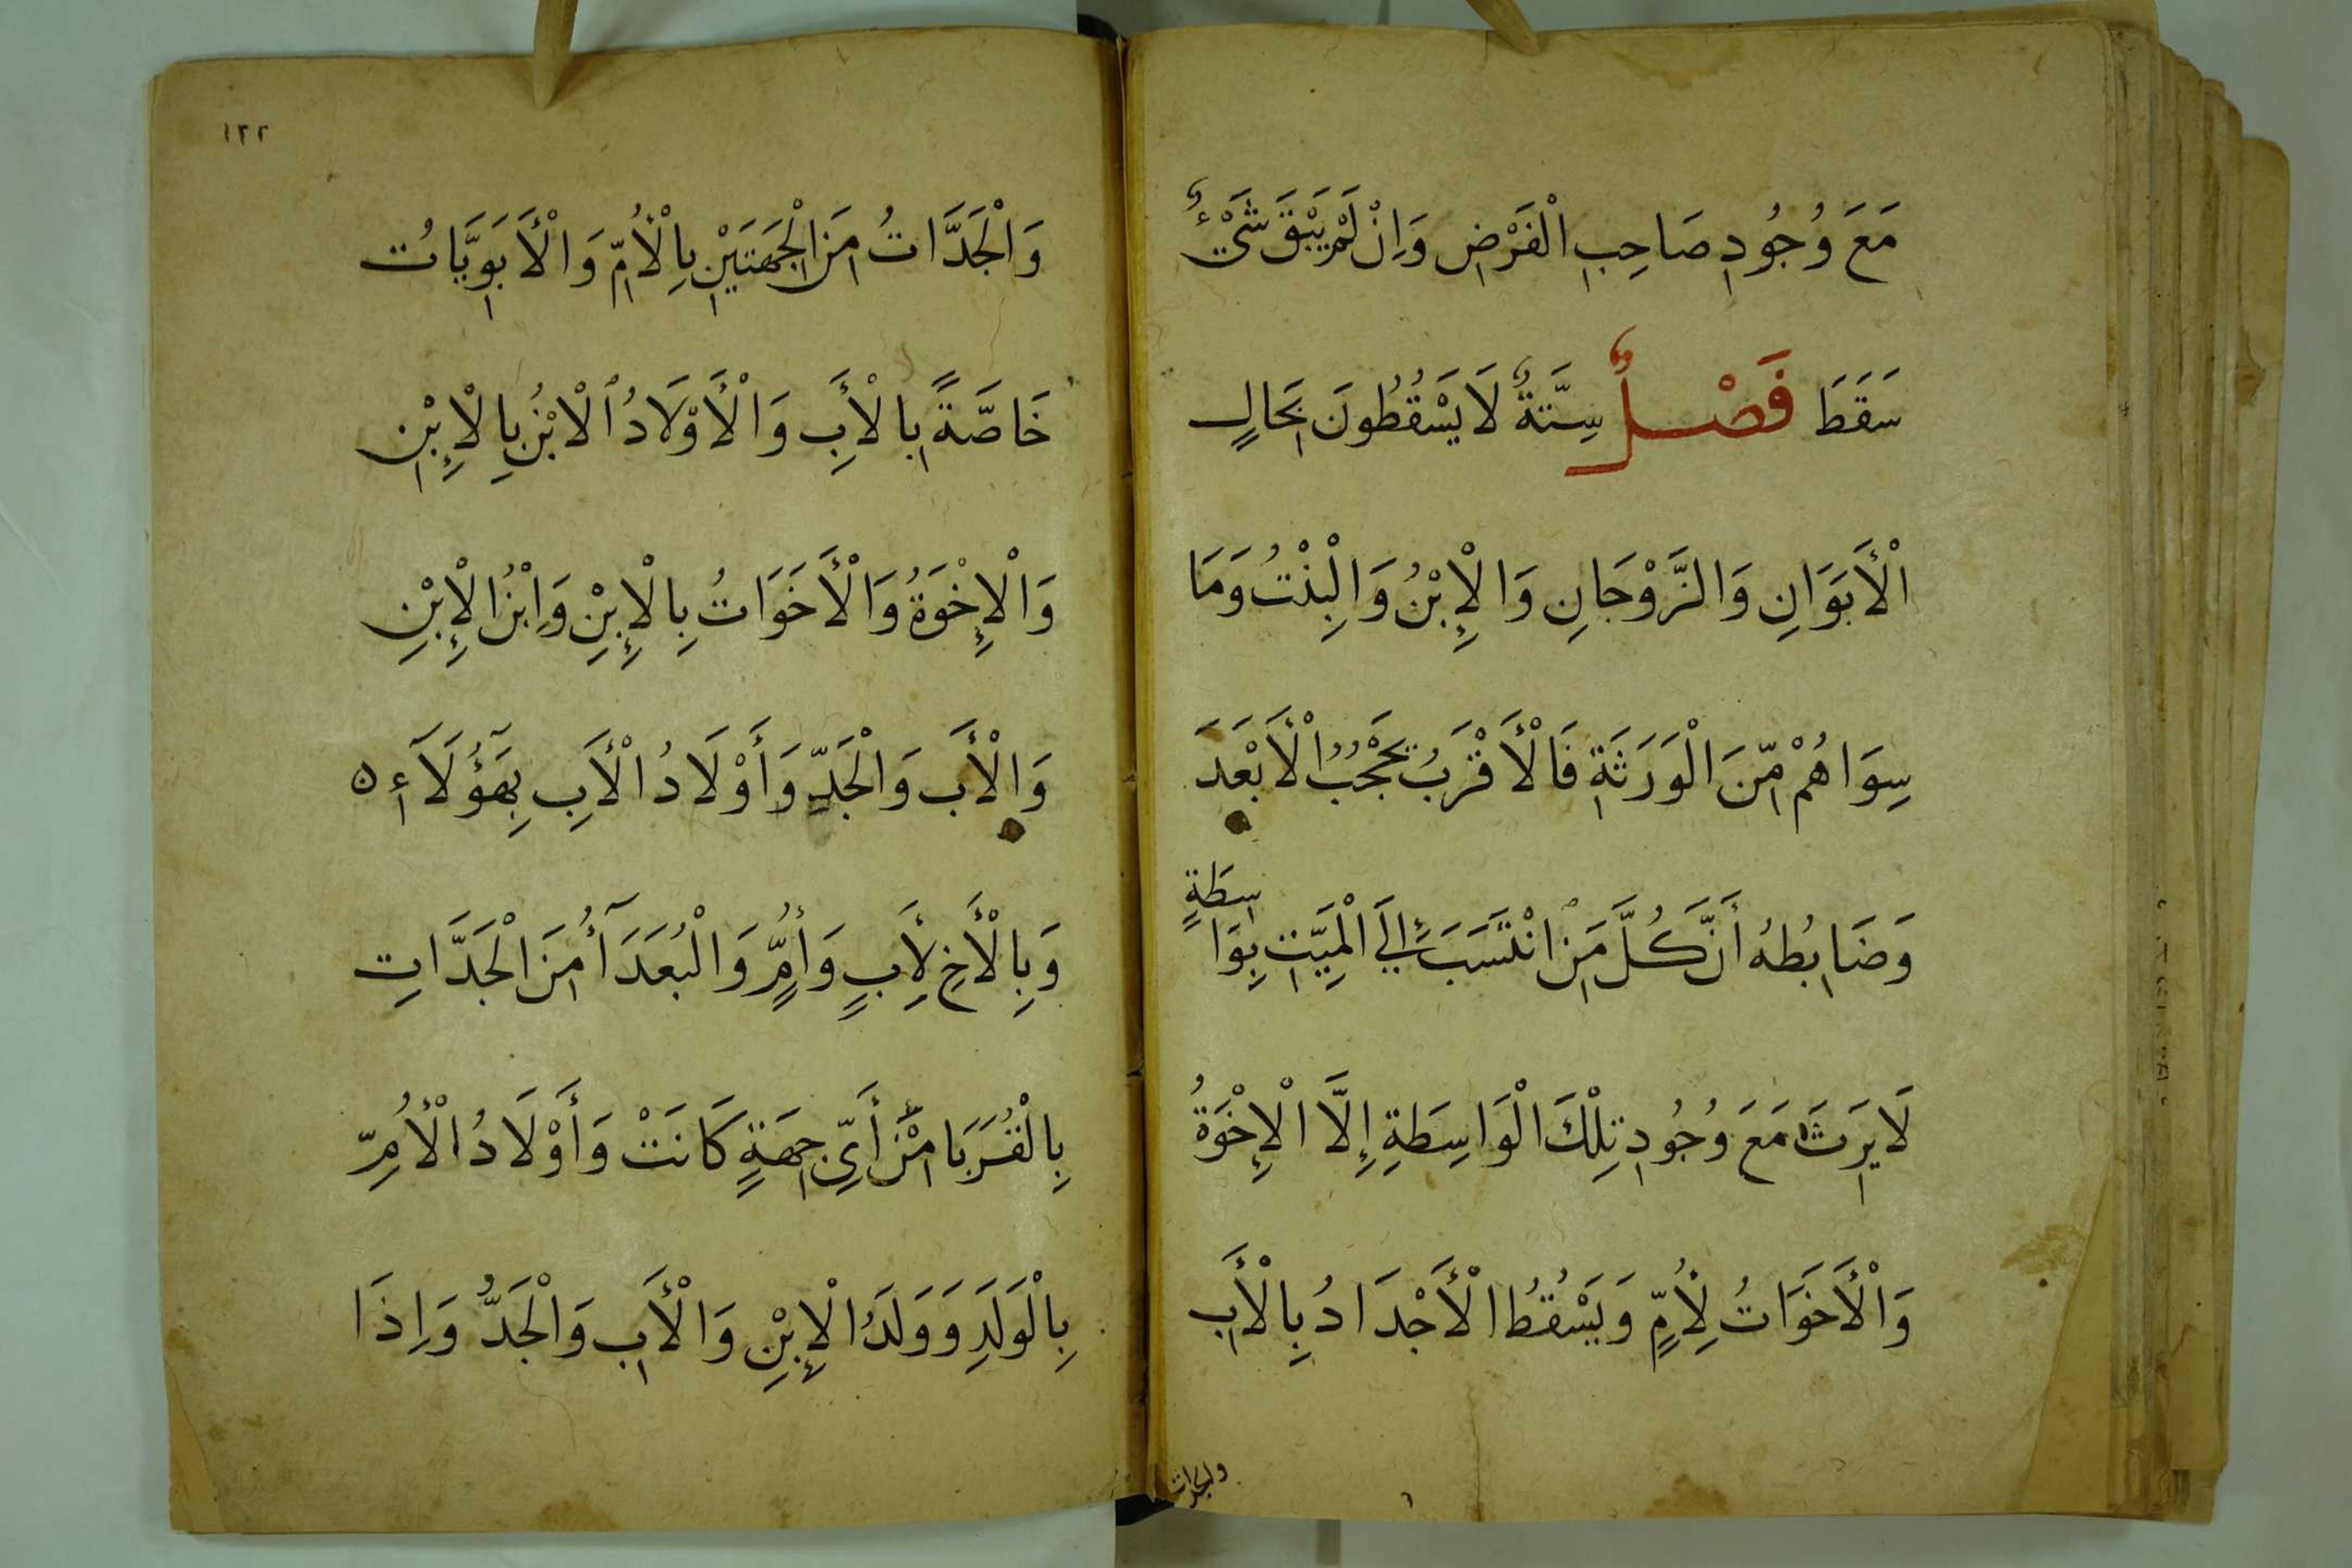 مَعَ وُجُودِ صَاحِبِ الْفَرْضِ وَاِنْ لَمْ يَبْقَ شَيْءٌ
سَقَطَ فَصْلٌ سِتَّةٌ لَا يَسْقُطُونَ بِحَالٍ
الْأَبَوَانِ وَالزَّوْجَانِ وَالْإِبْنُ وَالْبِنْتُ وَمَا
سِوَاهُمْ مِّنَ الْوَرَثَةِ فَالْأَقْرَبُ يَحْجُبُ الْأَبْعَدَ
وَضَابِطُهُ أَنَّ كُلَّ مَنِ انْتَسَبَ إِلَى الْمَيِّتِ بِوَاسِطَةٍ
لَا يَرِثُ مَعَ وُجُودِ تِلْكَ الْوَاسِطَةِ إِلَّا الْإِخْوَةُ
وَالْأَخَوَاتُ لِأُمٍّ وَيَسْقُطُ الْأَجْدَادُ بِالْأَبِ
والجدات
١٢٢
وَالْجَدَّاتُ مِنَ الْجِهَتَيْنِ بِالْأُمِّ وَالْأَبَوِيَّاتُ
خَاصَّةً بِالْأَبِ وَالْأَوْلَادُ الْابْنُ بِالْإِبْنِ
وَالْإِخْوَةُ وَالْأَخَوَاتُ بِالْإِبْنِ وَاِبْنُ الْإِبْنِ
وَالْأَبِ وَالْجَدِّ وَأَوْلَادُ الْأَبِ بِهَؤُلَآءِ ه
وَبِالْأَخِ لِأَبٍ وَأُمٍّ وَالْبُعَدَآءُ مِنَ الْجَدَّاتِ
بِالْقُرَبَا مِنْ أَيِّ جِهَةٍ كَانَتْ وَأَوْلَادُ الْأُمِّ
بِالْوَلَدِ وَوَلَدُ الْإِبْنِ وَالْأَبِ وَالْجَدُّ وَاِذَا